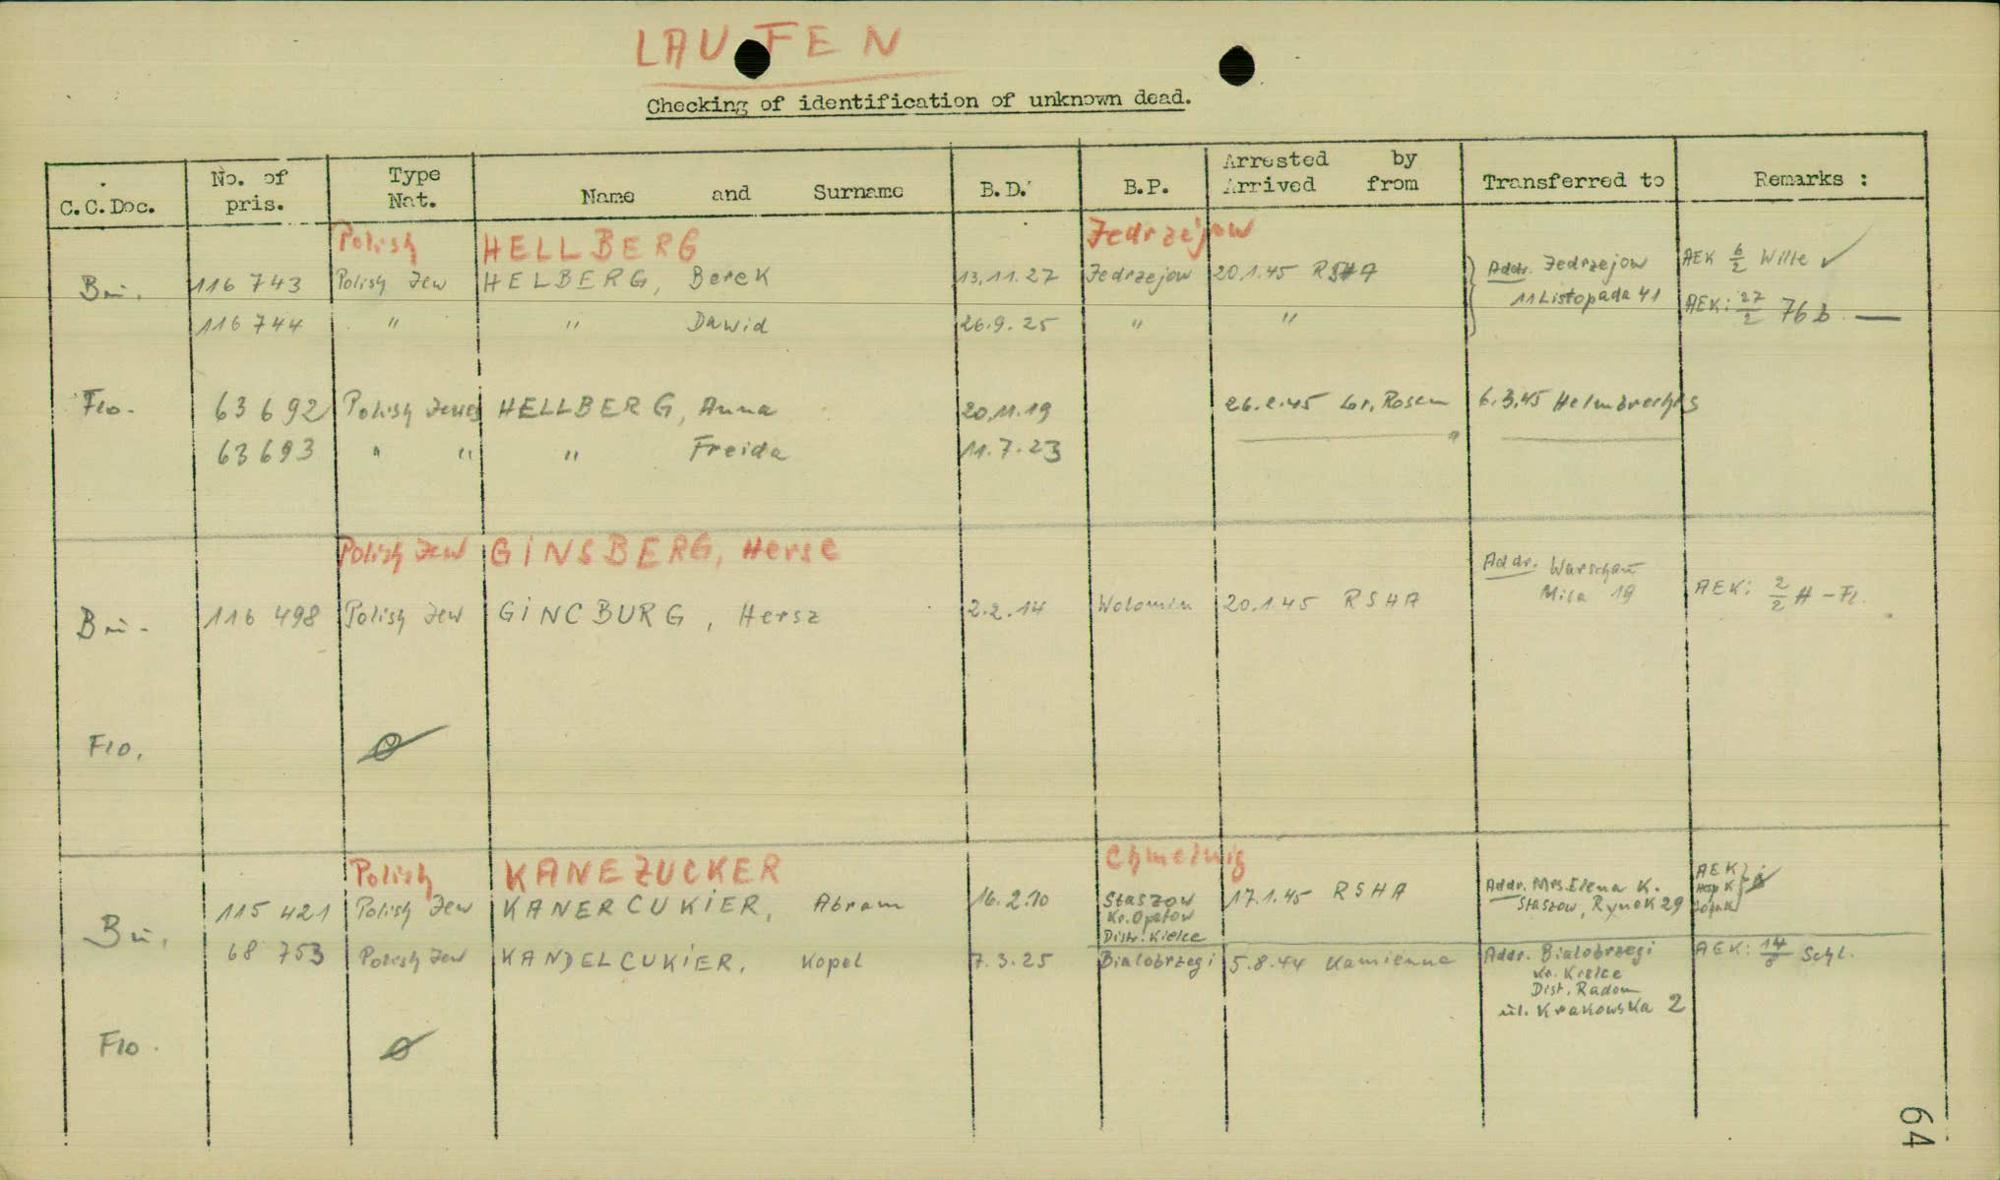 LAUFEN
Checking of identification of unknown dead.
C.C.Doc. No. of pris. Type Nat. Name and Surname B.D. B.P. Arrested by Arrived from Transferred to Remarks :
Polish HELLBERG Jedrzejow
Bu. 116 743 Polish Jew HELBERG, Berek 13.11.27 Jedrzejow 20.1.45 RSHA Addr. Jedrzejow AEK 6/2 Wille ✓
11 Listopada 41
116 744 " " Dawid 26.9.25 " " AEK: 27/2 76 b —
Flo. 63 692 Polish Jewes HELLBERG, Anna 20.11.19 26.2.45 Gr. Rosen 6.3.45 Helmbrechts
63 693 " " " Freida 11.7.23
Polish Jew GINSBERG, Herse
Addr. Warschau
Bu. 116 498 Polish Jew GINCBURG, Hersz 2.2.14 Wolomin 20.1.45 RSHA Mila 19 AEK: 2/2 H - Fl.
Flo. ø
Polish KANEZUCKER Chmelnig
Bu. 115 421 Polish Jew KANERCUKIER, Abram 16.2.10 Staszow 17.1.45 RSHA Addr. Mrs. Elena K. AEK
Kr. Opatow Staszow, Rynok 29
Distr. Kielce
68 753 Polish Jew KANDELCUKIER, Kopel 7.3.25 Bialobrzegi 5.8.44 Kamienna Addr. Bialobrzegi AEK: 14/8 Schl.
Kr. Kielce
Dist. Radom
ul. Krakowska 2
Flo. ø
64